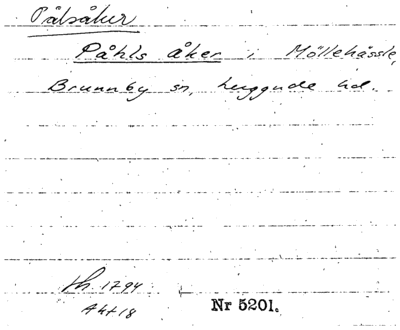 Pålsåker
Påhls åker i Möllehässle,
Brunnby sn, Luggude hd.
sh. 1794
Akt 18
Nr 5201.